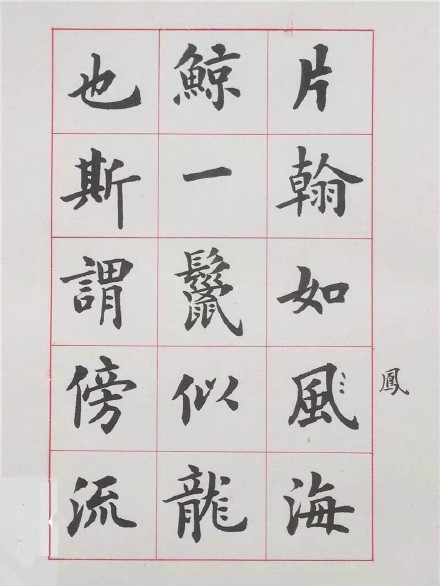 片翰如風海
鯨一鬣似龍
也斯謂傍流
鳳